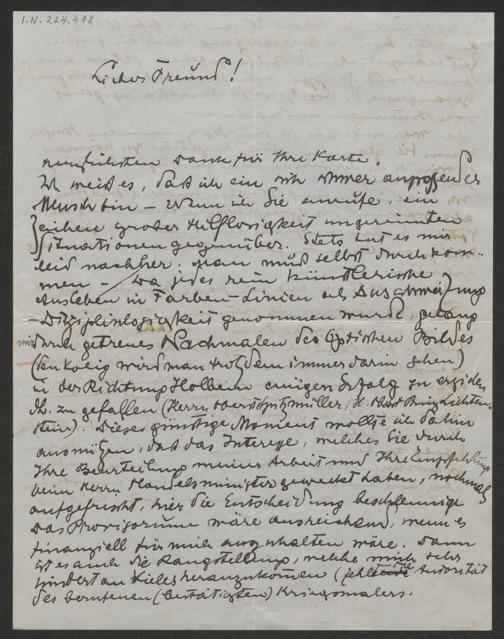 I.N. 224.418
Lieber Freund!
herzlichsten Dank für Ihre Karte.
Ich weiß es, daß ich ein sich immer
Mensch bin – wenn ich Sie anrufe, ein
Zeichen großer Hilflosigkeit ungereimten
Situationen gegenüber. Stets tut es mir
leid nachher: Man muß selbst durchkom-
men – Da jedes rein künstlerische
Ausleben in Farben-Linien als Ausschweifung
– Disziplinlosigkeit genommen wurde, gelang
mir durch getreues Nachmalen des Optischen Bildes
(den Kolig wird man trotzdem immer darin sehen)
in der Richtung Holbeins einigen Erfolg zu erzielen,
d.h. zu gefallen (Herrn Oberst Spitzmüller, Prinz Lichten-
stein). Dieses günstige Moment wollte ich dahin
ausnützen, daß das Interesse, welches Sie durch
Ihre Beurteilung meiner Arbeit und Ihre Empfehlung
beim Herrn Handelsminister geweckt haben, nochmals
aufgefrischt, hier die Entscheidung beschleunige
Das Provisorium wäre ausreichend, wenn es
finanziell für mich auszuhalten wäre. Dann
ist es auch die Rangstellung, welche mich sehr
hindert an Vieles heranzukommen (fehlt die Autorität
des berufenen (bestätigten) Kriegsmalers.